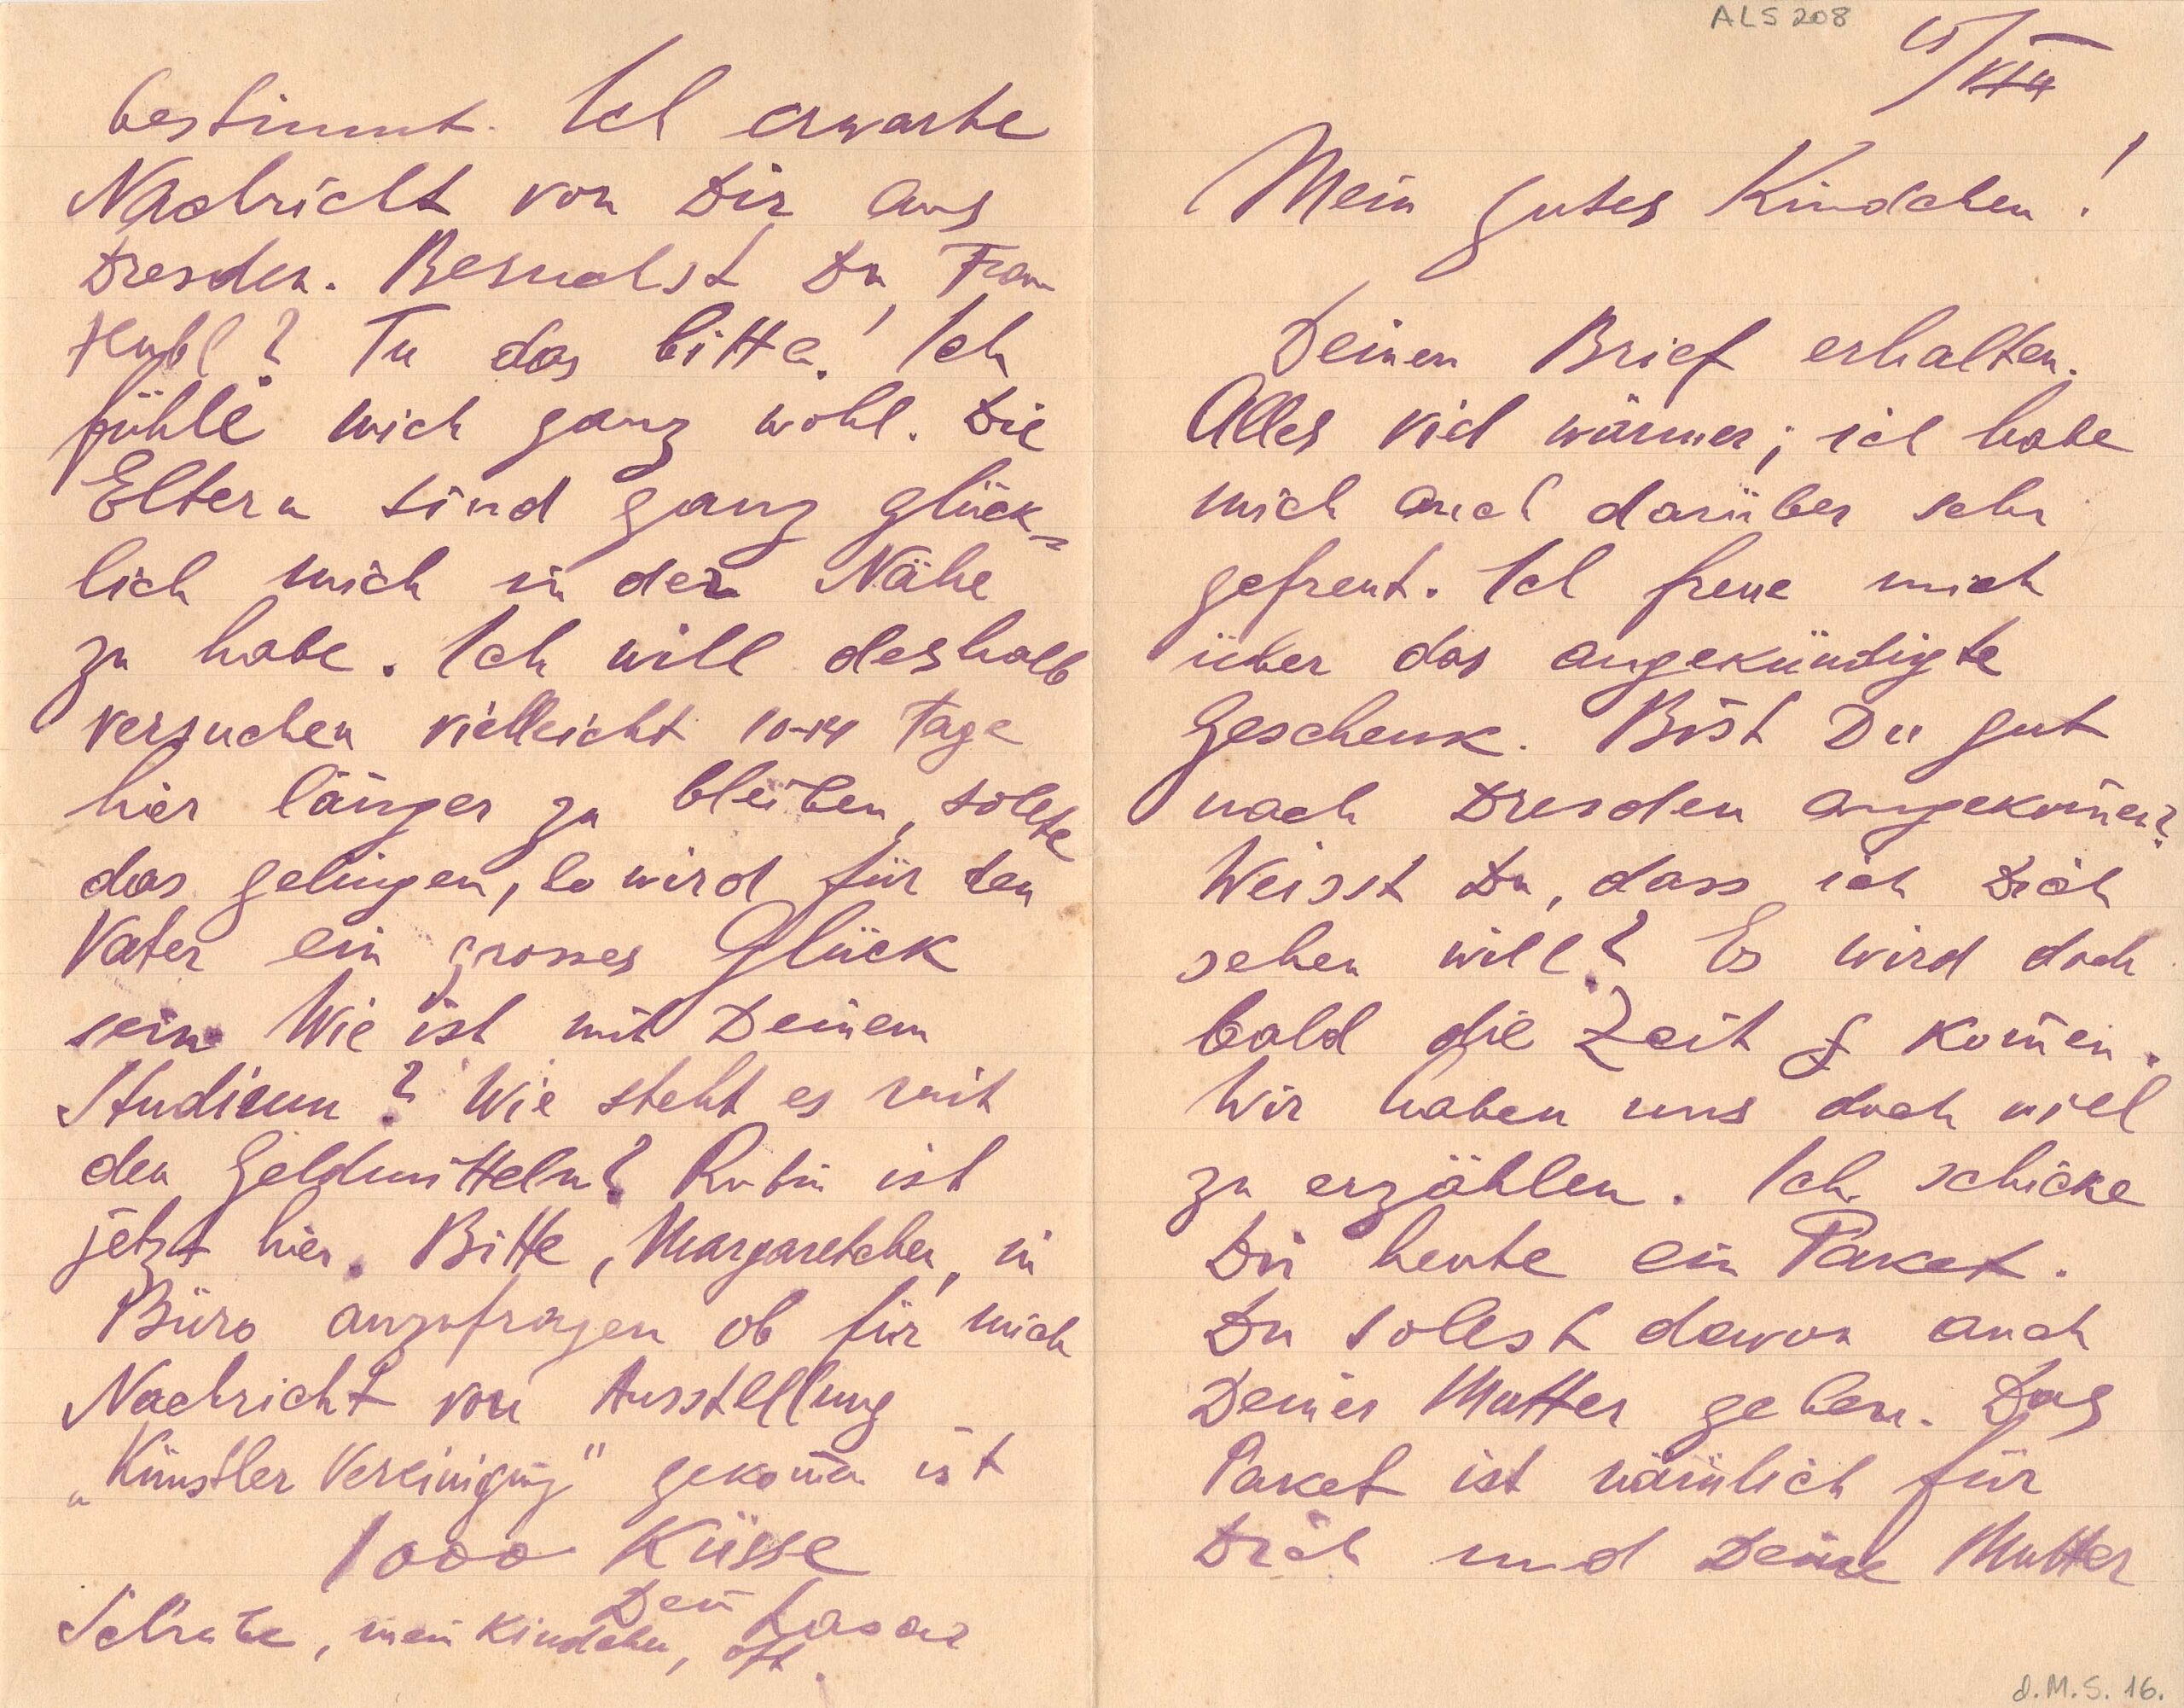 ALS 208
15/VIII
Mein gutes Kindchen!
Deinen Brief erhalten.
Alles viel wärmer; ich habe
mich auch darüber sehr
gefreut. Ich freue mich
über das angekündigte
Geschenk. Bist Du gut
nach Dresden angekom̄en?
Weisst Du, dass ich Dich
sehen will? Es wird doch
bald die Zeit kom̄en.
Wir haben uns doch viel
zu erzählen. Ich schicke
Dir heute ein Paket.
Du sollst davon auch
Deiner Mutter geben. Das
Paket ist nämlich für
Dich und Deine Mutter
d.M.S. 16.
bestimmt. Ich erwarte
Nachricht von Dir aus
Dresden. Besuchst Du Frau
Hubl? Tu das bitte! Ich
fühle mich ganz wohl. Die
Eltern sind ganz glück=
lich mich in der Nähe
zu habe. Ich will deshalb
versuchen vielleicht 10-14 Tage
hier länger zu bleiben, sollte
das gelingen, so wird für den
Vater ein grosses Glück
sein. Wie ist mit Deinem
Studium? Wie steht es mit
den Geldmitteln? Rubin ist
jetzt hier. Bitte, Margaretchen, in
Büro anzufragen ob für mich
Nachricht von Ausstellung
„Künstler Vereinigung" gekom̄en ist
1000 Küsse
Dein Lasar
Schreibe, mein Kindchen, oft.